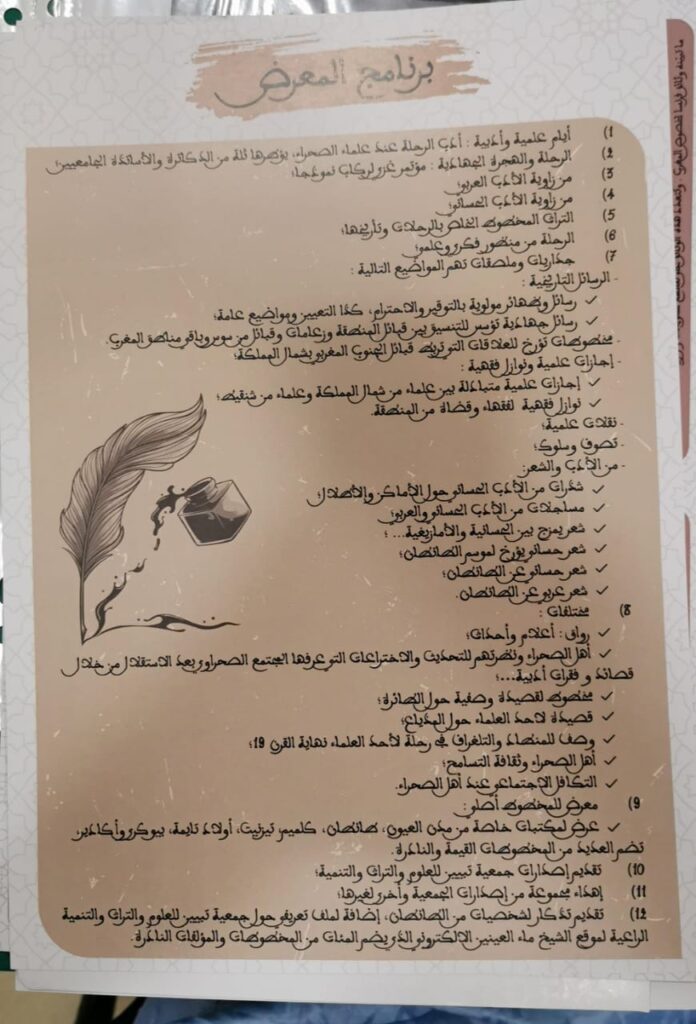 برنامج المعرض
1) أيام علمية وأدبية : أدب الرحلة عند علماء الصحراء، يؤطرها ثلة من الدكاترة والأساتذة الجامعيين؛
2) الرحلة والهجرة الجهادية : مؤتمر غزو لركاب نموذجا؛
3) من زاوية الأدب العربي؛
4) من زاوية الأدب الحساني؛
5) التراث المخطوط الخاص بالرحلات وتأريخها؛
6) الرحلة من منظور فكري وعلمي؛
7) جداريات وملصقات تهم المواضيع التالية :
- الرسائل التاريخية :
✓ رسائل وظهائر مولوية بالتوقير والاحترام، كذا التعيين ومواضيع عامة؛
✓ رسائل جهادية تؤسس للتنسيق بين قبائل المنطقة وزعامات وقبائل من سوس وباقي مناطق المغرب.
- مخطوطات تؤرخ للعلاقات التي تربط قبائل الجنوب المغربي بشمال المملكة؛
- إجازات علمية ونوازل فقهية :
✓ إجازات علمية متبادلة بين علماء من شمال المملكة وعلماء من شنقيط؛
✓ نوازل فقهية لفقهاء وقضاة من المنطقة.
- نقلات علمية؛
- تصوف وسلوك؛
- من الأدب والشعر:
✓ شذرات من الأدب الحساني حول الأماكن والأطلال؛
✓ مساجلات من الأدب الحساني والعربي؛
✓ شعر يمزج بين الحسانية والأمازيغية... ؛
✓ شعر حساني يؤرخ لموسم الطانطان؛
✓ شعر حساني عن الطانطان؛
✓ شعر عربي عن الطانطان.
8) مختلفات :
✓ رواق : أعلام وأحداث؛
✓ أهل الصحراء ونظرتهم للتحديث والاختراعات التي عرفها المجتمع الصحراوي بعد الاستقلال من خلال
قصائد و فقرات أدبية...؛
✓ مخطوط لقصيدة وصفية حول الطائرة؛
✓ قصيدة لاحد العلماء حول المذياع؛
✓ وصف للمنطاد والتلغراف في رحلة لأحد العلماء نهاية القرن 19؛
✓ أهل الصحراء وثقافة التسامح؛
✓ التكافل الاجتماعي عند أهل الصحراء.
9) معرض للمخطوط أصلي:
✓ عرض لمكتبات خاصة من مدن العيون، طانطان، كلميم، تيزنيت، أولاد تايمة، بيوكرى وأكادير،
تضم العديد من المخطوطات القيمة والنادرة.
10) تقديم إصدارات جمعية تبيين للعلوم والتراث والتنمية؛
11) إهداء مجموعة من إصدارات الجمعية وأخرى لغيرها؛
12) تقديم تذكار لشخصيات من الطانطان، إضافة لملف تعريفي حول جمعية تبيين للعلوم والتراث والتنمية
الراعية لموقع الشيخ ماء العينين الالكتروني الذي يضم المئات من المخطوطات والمؤلفات النادرة.